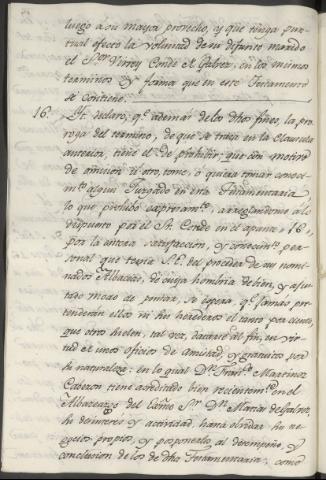 luego a su mayor provecho, y que tenga pun-
tual efecto la voluntad de mi difunto marido
el S.or Virrey Conde de Galvez, en los mismos
terminos y forma que en este Testamento
se contiene.
16. It. declaro, q.e ademas de los dhos fines, la pro-
roga del termino, de que se trata en la Clausula
anterior, tiene el de prohibir, que con motivo
de omision ù otro, tome, ò quiera tomar conoci-
m.to algun Juzgado en esta Testamentaria,
lo que prohibo expresam.te, arreglandome á lo
dispuesto por el S.r Conde en el apunte 16,
por la entera satisfaccion, y conocim.to per-
sonal que tenia S.E. del proceder de mis nomi-
nados Albaceas, de cuya hombria de bien, y ajus-
tado modo de pensar, se espera, q.e jamas pre-
tenderán ellos ni sus herederos el tanto por ciento,
que otros suelen, tal vez, al fin, en vir-
tud de unos oficios de amistad, y gratuitos por
su naturaleza: en lo qual D.n Fran.co Martinez
Cabezon tiene acreditado bien recientem.te en el
Albaceazgo del Exmo S.or D.n Matias de Galvez,
su desinterés y actividad, hasta olvidar sus ne-
gocios propios, y posponerlos al desempeño, y
conclusion de los de dha Testamentaria; como